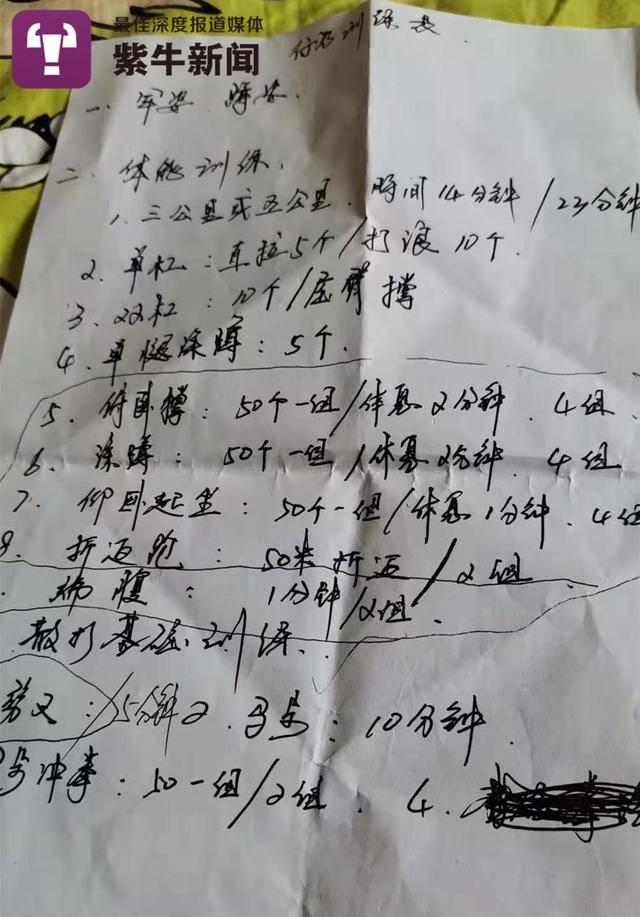 最佳深度报道媒体
紫牛新闻
训练表
一. 军姿. 蹲姿.
二. 体能训练.
1. 三公里或五公里. 时间14分钟/23分钟
2. 单杠:直拉5个/打浪10个.
3. 双杠:10个/屈臂撑
4. 单腿深蹲:5个.
5. 俯卧撑:50个一组/休息2分钟. 4组.
6. 深蹲:50个一组/休息2分钟. 4组
7. 仰卧起坐:50个一组/休息1分钟. 4组
8. 折返跑:50米折返/2组.
. 绵腹:1分钟/2组.
散打基础训练.
劈叉:15分钟2. 马步:10分钟.
步冲拳:50一组/2组. 4.